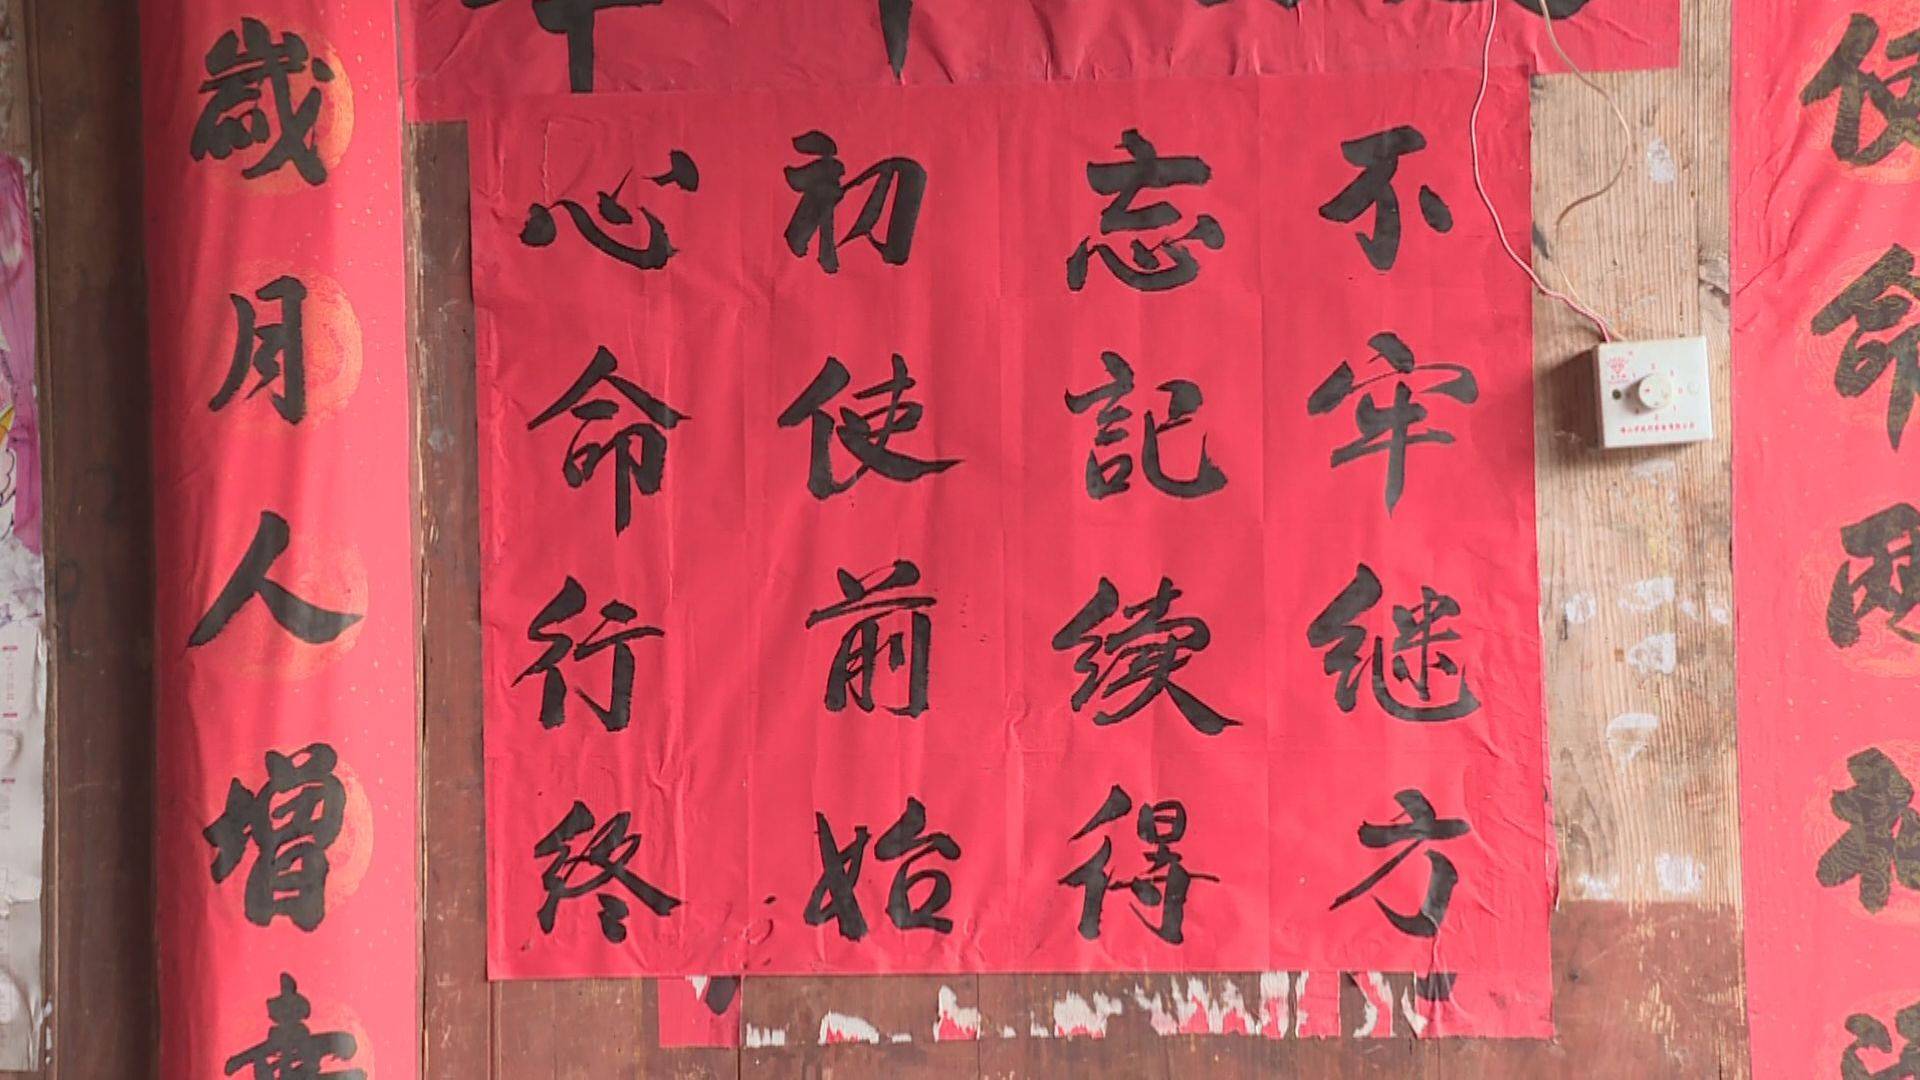 不忘初心
牢記使命
继续前行
方得始终
歲月人增